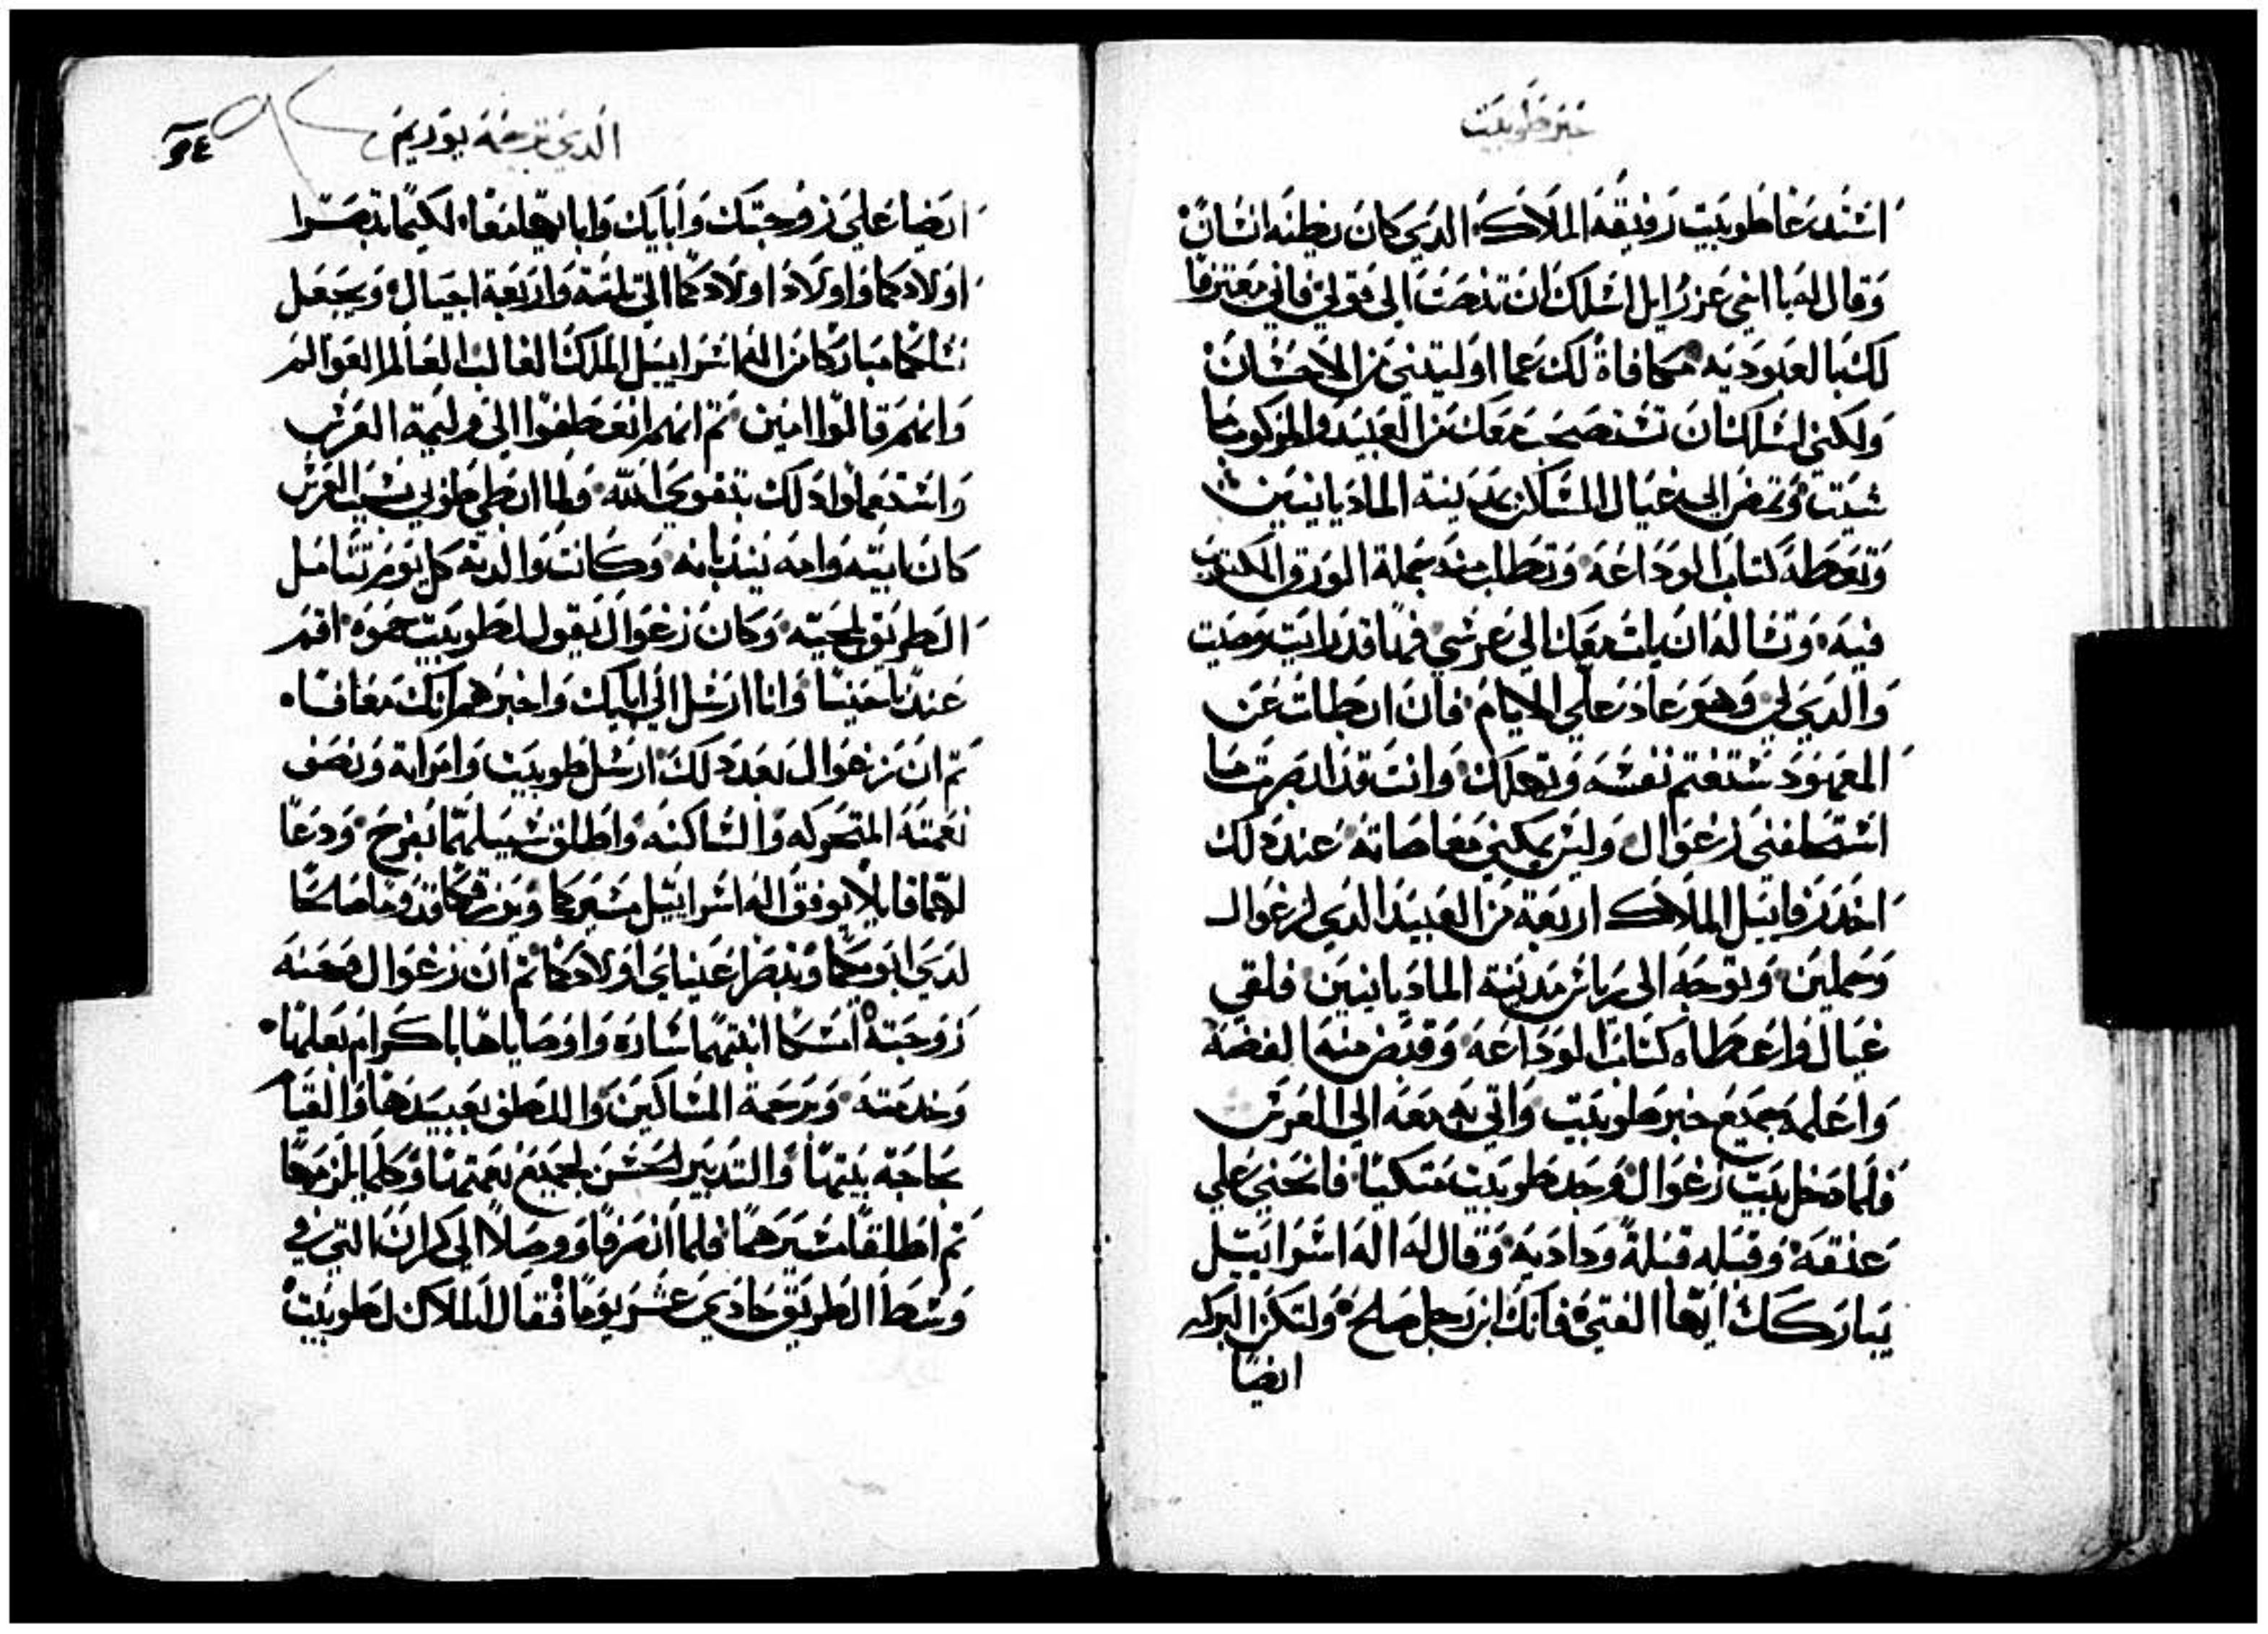 خبر طوبيت
استدعا طوبيت رفيقه الملاك الدي كان يظنه انسان
وقال له يا اخي عزرايل اسلك ان تنصت الي قولي فاني معترفا
لك بالعبوديه مكافاة لك عما اوليتني من الاحسان
ولكني اسالك ان تستصحب معك من العبيد والمركوب ما
شيت وتمضي الي غيال الساكن بمدينة الماديانيين
وتعطه كتاب الوداعه وتطلب منه جملة الورق المكتوب
فيه وتساله ان يات معك الي عرسي فها قد رايت وصيت
والدي لي وهو عادد علي الايام فان ابطات عن
المعهود ستغتم نفسه وتهلك وانت قد ابصرت ما
استحلفني رغوال وليس يمكني معاصاته عند دلك
اخد رفاييل الملاك اربعة من العبيد الدي لرغوال
وجملين وتوجه الي رياس مدينة الماديانيين فلقي
غيال واعطاه كتاب الوداعه وقبض منه الفضه
واعلمه بجميع خبر طوبيت واتي به معه الي العرس
فلما دخل بيت رغوال وجد طوبيت متكيا فانحني علي
عنقه وقبله قبلة ودادية وقال له اله اسراييل
يباركك ايها الفتي فانك ابن رجل صلح ولتكن البركه
ايضا
الدي ترجمة يوريم
٩٤
ايضا علي زوجتك وابايك وابايها معا لكيما تبصرا
اولادكما واولاد اولادكما الي تلتة واربعة اجيال ويجعل
نسلكما مباركا من اله اسراييل الملك الغالب العالم العوالم
وانهم قالوا امين تم انهم انعطفوا الي وليمة العرس
واستعملوا دلك بتقوي الله ولما ابطي طوبي بسبب العرس
كان ابيه وامه يندبانه وكانت والدته كل يوم تتامل
الطريق لمجيه وكان رغوال يقول لطوبيت حموه اقم
عندنا حينا وانا ارسل الي ابايك واخبرهم انك معافا
تم ان رغوال بعد دلك ارسل طوبيت وامراته ونصف
نعمته المتحركه والساكنه واطلق سبيلهما بفرح ودعا
لهما قايلا يوفق اله اسراييل مسيركما ويرزقكما قدوما صالحا
لدي ابويكما وتبصر عيناي اولادكما تم ان رغوال وحنه
زوجته امسكا ابنتهما ساره واوصاياها باكرام بعلها
وخدمته ورحمة المساكين واللطف بعبيدها والقيام
بحاجة بيتها والتدبير الحسن لجميع نعمتها وكلما يلزمها
تم اطلقا مسيرهما فلما انصرفا ووصلا الي كران التي في
وسط الطريق حادي عشر يوما فقال الملاك لطوبيت